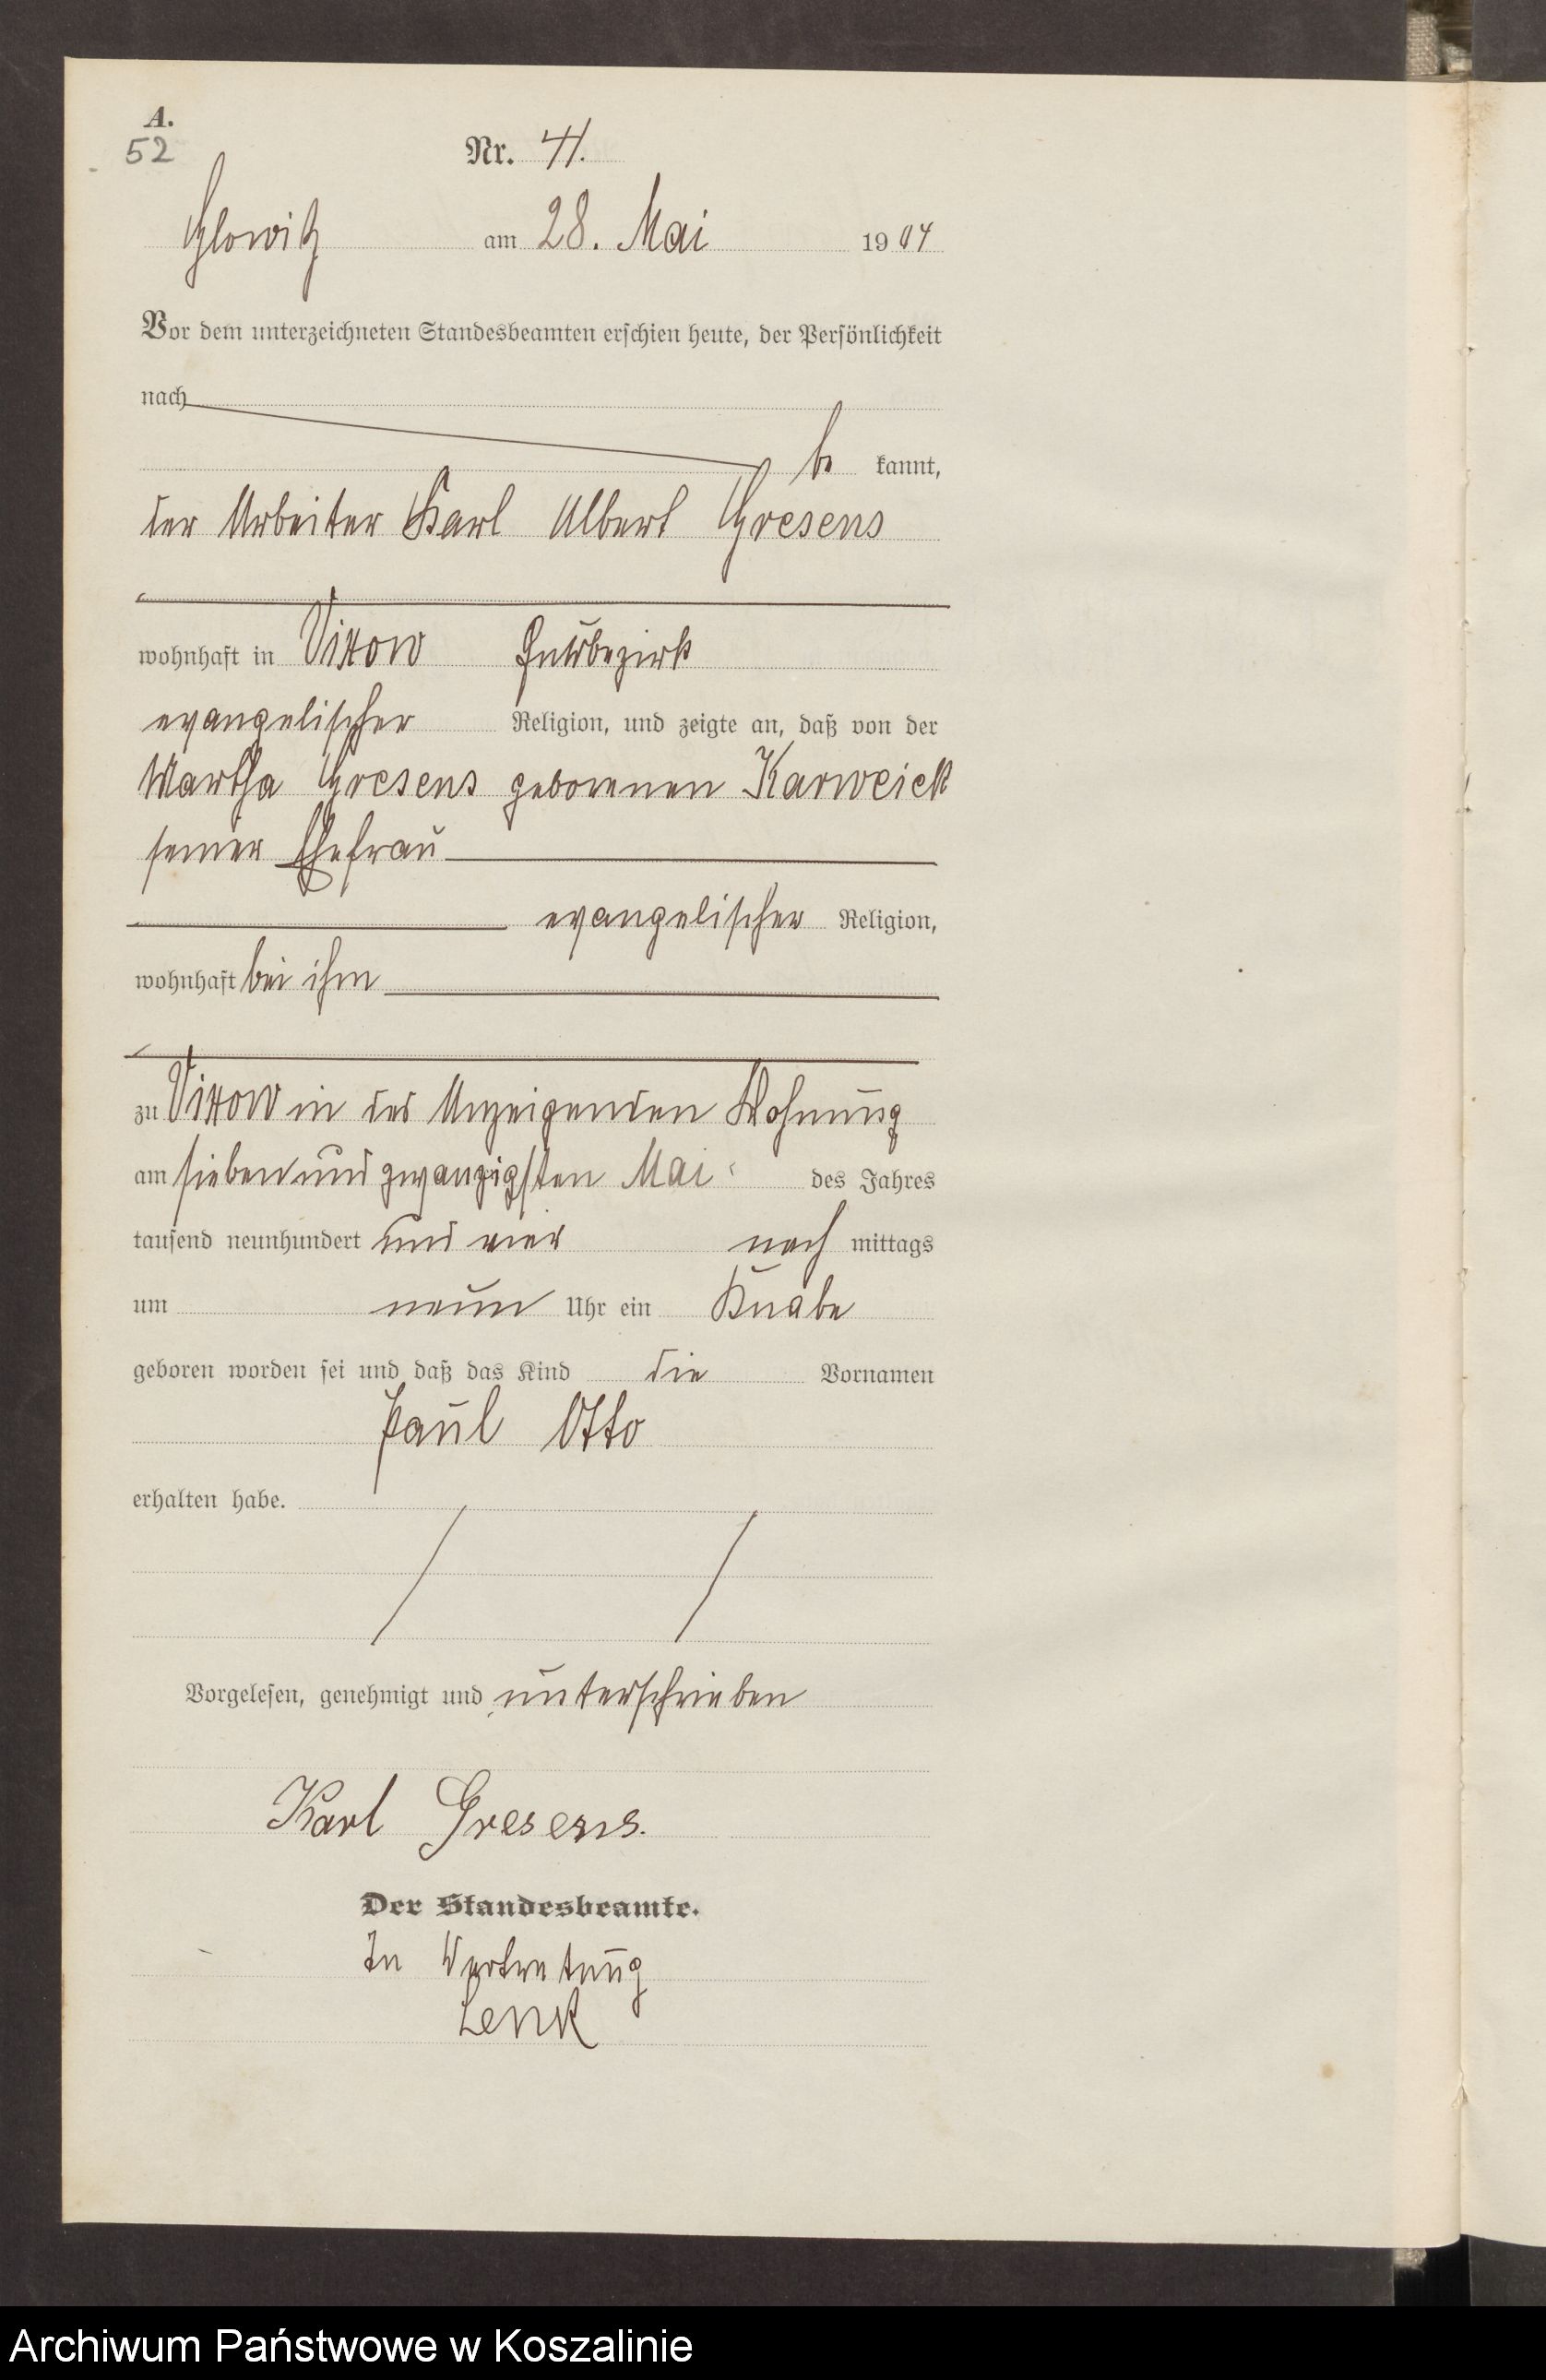 A.
52
Nr. 41.
Glowitz am 28. Mai 1904
Vor dem unterzeichneten Standesbeamten erschien heute, der Persönlichkeit
nach
be kannt,
der Arbeiter Karl Albert Gresens
wohnhaft in Vixow Gutsbezirk
evangelischer Religion, und zeigte an, daß von der
Martha Gresens geborenen Karweick
seiner Ehefrau
evangelischer Religion,
wohnhaft bei ihm
zu Vixow in des Anzeigenden Wohnung
am siebenundzwanzigsten Mai des Jahres
tausend neunhundert und vier nach mittags
um neun Uhr ein Knabe
geboren worden sei und daß das Kind die Vornamen
Paul Otto
erhalten habe.
Vorgelesen, genehmigt und unterschrieben
Karl Gresens.
Der Standesbeamte.
In Vertretung
Lenk
Archiwum Państwowe w Koszalinie